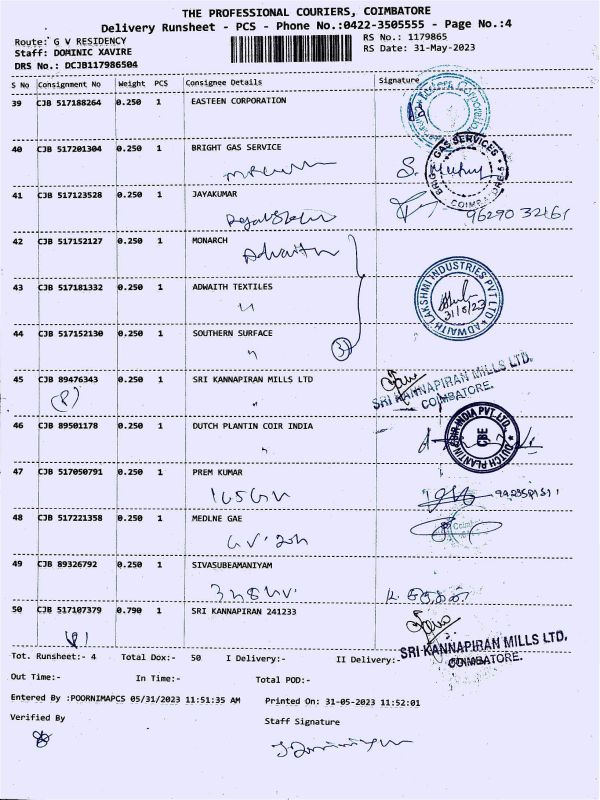 THE PROFESSIONAL COURIERS, COIMBATORE
Delivery Runsheet - PCS - Phone No.:0422-3505555 - Page No.:4
Route: G V RESIDENCY
RS No.: 1179865
Staff: DOMINIC XAVIRE
RS Date: 31-May-2023
DRS No.: DCJB117986504
S No Consignment No Weight PCS Consignee Details Signature
39 CJB 517188264 0.250 1 EASTEEN CORPORATION
40 CJB 517201304 0.250 1 BRIGHT GAS SERVICE
GAS SERVICES
COIMBATORE-5
41 CJB 517123528 0.250 1 JAYAKUMAR
42 CJB 517152127 0.250 1 MONARCH
Adwaith
43 CJB 517181332 0.250 1 ADWAITH TEXTILES
ADWAITH LAKSHMI INDUSTRIES PVT LTD
31/5/23
44 CJB 517152130 0.250 1 SOUTHERN SURFACE
3
45 CJB 89476343 0.250 1 SRI KANNAPIRAN MILLS LTD
SRI KANNAPIRAN MILLS LTD.
COIMBATORE.
46 CJB 89501178 0.250 1 DUTCH PLANTIN COIR INDIA
DUTCH PLANTIN COIR INDIA PVT. LTD.
CBE
47 CJB 517050791 0.250 1 PREM KUMAR
48 CJB 517221358 0.250 1 MEDLNE GAE
49 CJB 89326792 0.250 1 SIVASUBEAMANIYAM
50 CJB 517107379 0.790 1 SRI KANNAPIRAN 241233
SRI KANNAPIRAN MILLS LTD.
COIMBATORE.
Tot. Runsheet:- 4 Total Dox:- 50 I Delivery:- II Delivery:-
Out Time:- In Time:- Total POD:-
Entered By :POORNIMAPCS 05/31/2023 11:51:35 AM Printed On: 31-05-2023 11:52:01
Verified By
Staff Signature